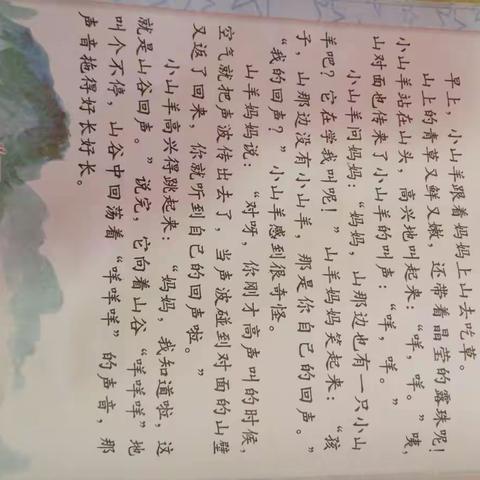 早上，小山羊跟着妈妈上山去吃草。
山上的青草又鲜又嫩，还带着晶莹的露珠呢！
小山羊站在山头，高兴地叫起来：“咩，咩。”咦，
山对面也传来了小山羊的叫声：“咩，咩。”
小山羊问妈妈：“妈妈，山那边也有一只小山
羊吧？它在学我叫呢！”山羊妈妈笑起来：“孩
子，山那边没有小山羊，那是你自己的回声。”
“我的回声？”小山羊感到很奇怪。
山羊妈妈说：“对呀，你刚才高声叫的时候，
空气就把声波传出去了，当声波碰到对面的山壁
又返了回来，你就听到自己的回声啦。”
小山羊高兴得跳起来：“妈妈，我知道啦，这
就是山谷回声。”说完，它向着山谷“咩咩咩”地
叫个不停，山谷中回荡着“咩咩咩”的声音，那
声音拖得好长好长。